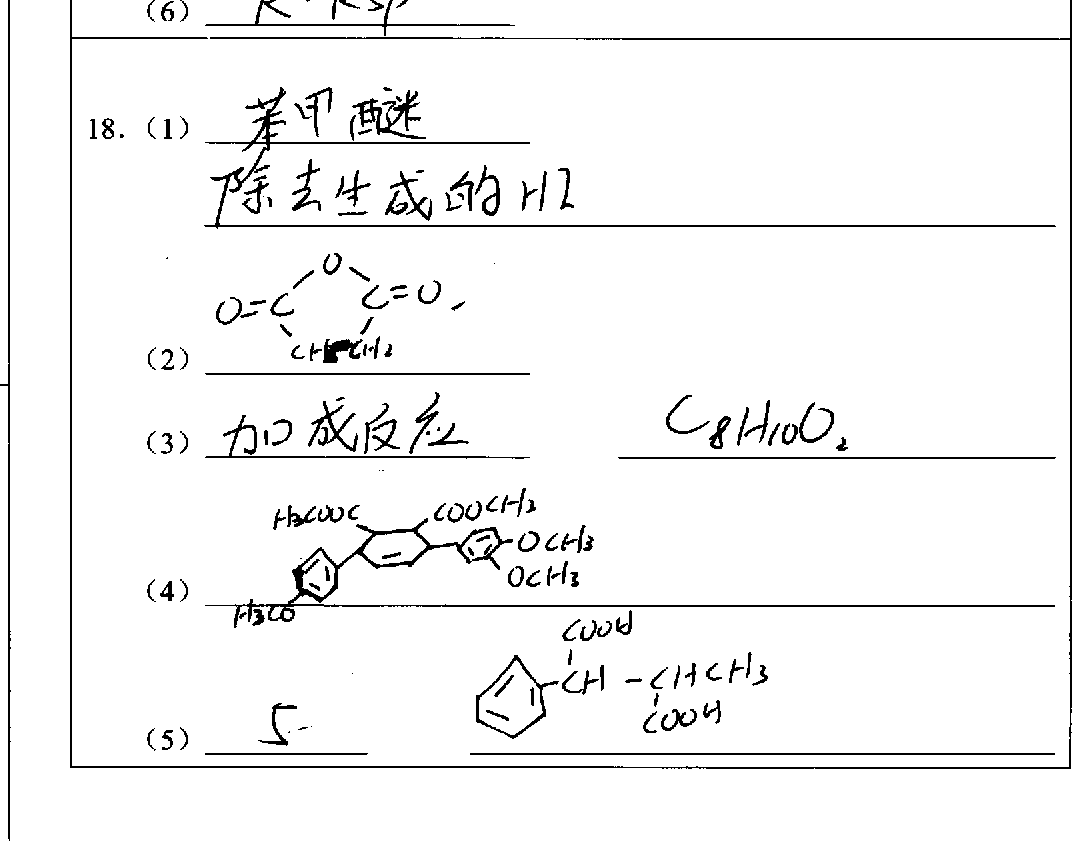 (6)
18. (1) 苯甲醚
除去生成的HI
O
O=C C=O
(2) CH CH2
(3) 加成反应 C8H10O2
H3COOC COOCH3
OCH3
(4) OCH3
H3CO
COOH
CH - CHCH3
COOH
(5) 5